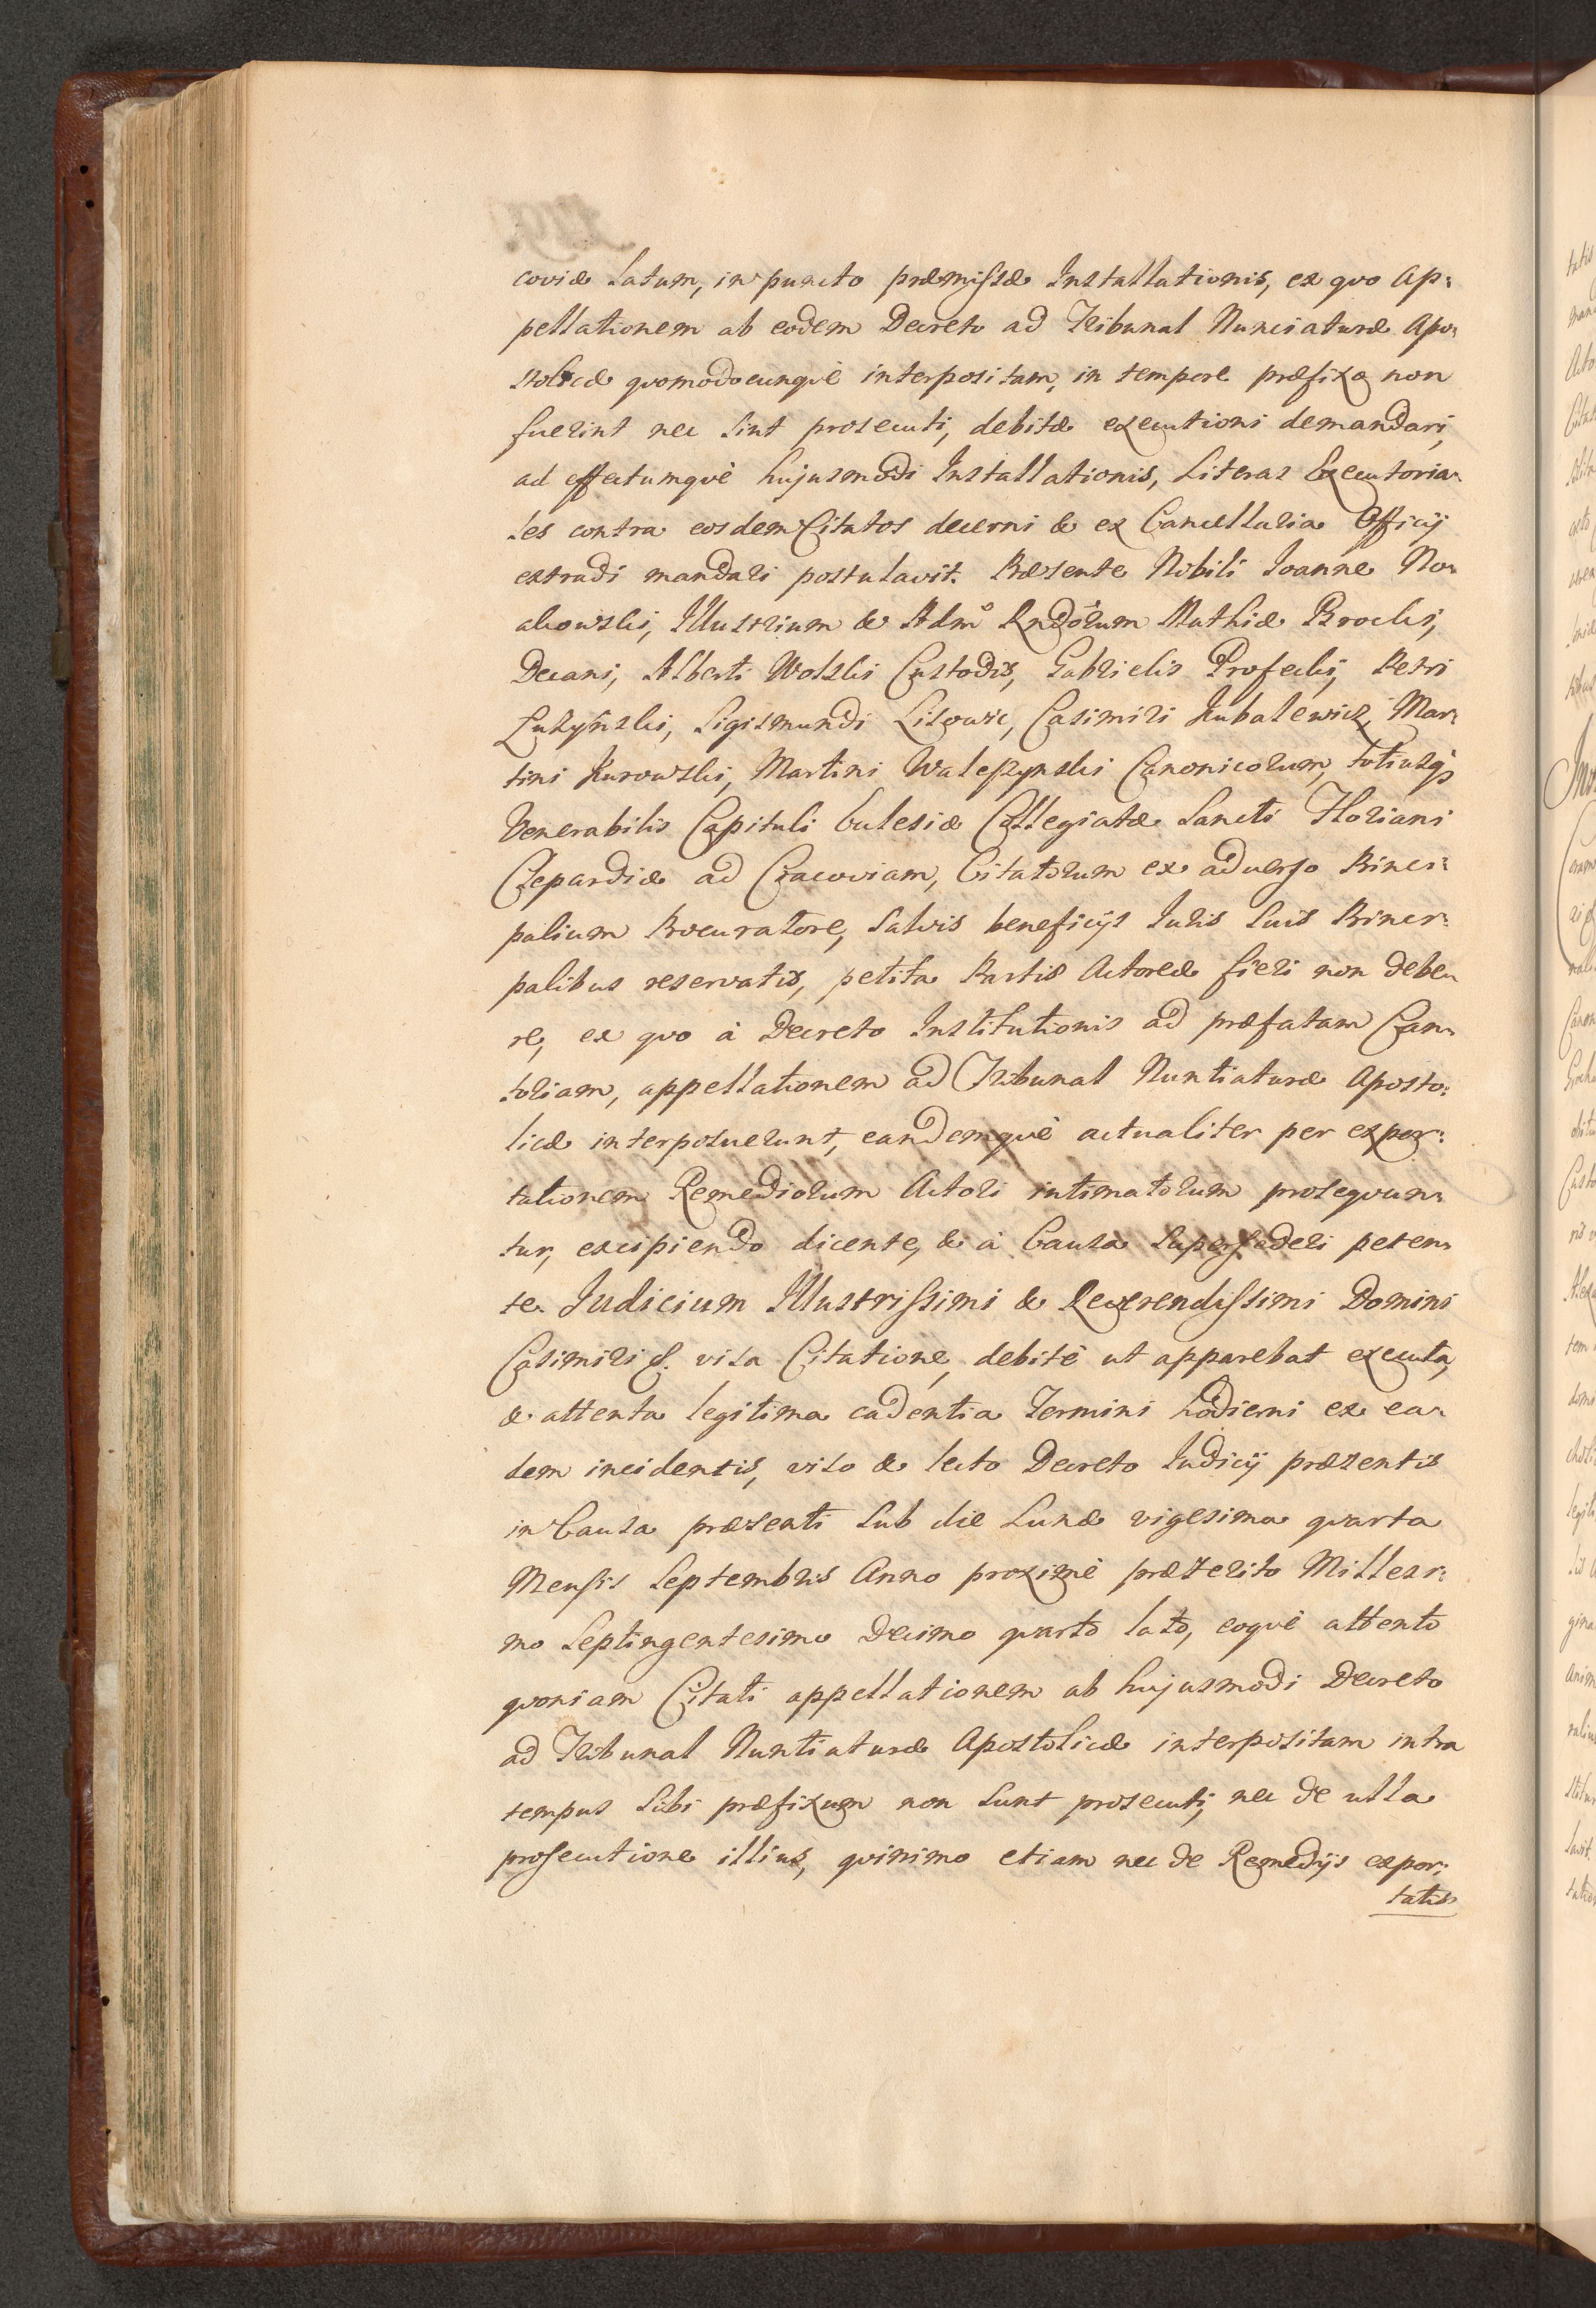 coviæ latum, in puncto præmissæ Installationis, ex quo Ap:
pellationem ab eodem Decreto ad Tribunal Nunciaturæ Apo:
stolicæ quomodocunquè interpositam, in tempore præfixo non
fuerint nec sint prosecuti, debitæ executioni demandari,
ad effectumquè hujusmodi Installationis, Literas Executoria:
les contra eosdem Citatos decerni & ex Cancellaria Officij
extradi mandari postulavit. Præsente Nobili Joanne No:
akowski, Illustrium & Adm° Rndorum Mathiæ Brocki,
Decani, Alberti Wolski Custodis, Gabrielis Profecki, Petri
Sigismundi Lisowic, Casimiri Kubalewicz, Mar:
tini Kurowski, Martini Canonicorum, totiusq;
Venerabilis Capituli Ecclesiæ Collegiatæ Sancti Floriani
Clepardiæ ad Cracoviam, Citatorum ex adverso Princi:
palium Procuratore, salvis beneficijs Juris suis Princi:
palibus reservatis, petita Partis Actoreæ fieri non debe:
re, ex quo à Decreto Institutionis ad præfatam Can:
toriam, appellationem ad Tribunal Nuntiaturæ Aposto:
licæ interposuerunt, eandemquè actualiter per expor:
tationem Remediorum Actori intimatorum prosequun:
tur, excipiendo dicente, & à Causa supersederi peten:
te. Judicium Illustrissimi & Reverendissimi Domini
Casimiri &. visa Citatione, debitè ut apparebat executa,
& attenta legitima cadentia Termini hodierni ex ea:
dem incidentis, viso & lecto Decreto Judicij præsentis
in Causa præsenti sub die Lunæ vigesima quarta
Mensis Septembris Anno proximè præterito Millesi:
mo Septingentesimo Decimo quarto lato, eoquè attento
quoniam Citati appellationem ab hujusmodi Decreto
ad Tribunal Nuntiaturæ Apostolicæ interpositam intra
tempus sibi præfixum non sunt prosecuti, nec de ulla
prosecutione illius, quinimo etiam nec de Remedijs expor:
tatis